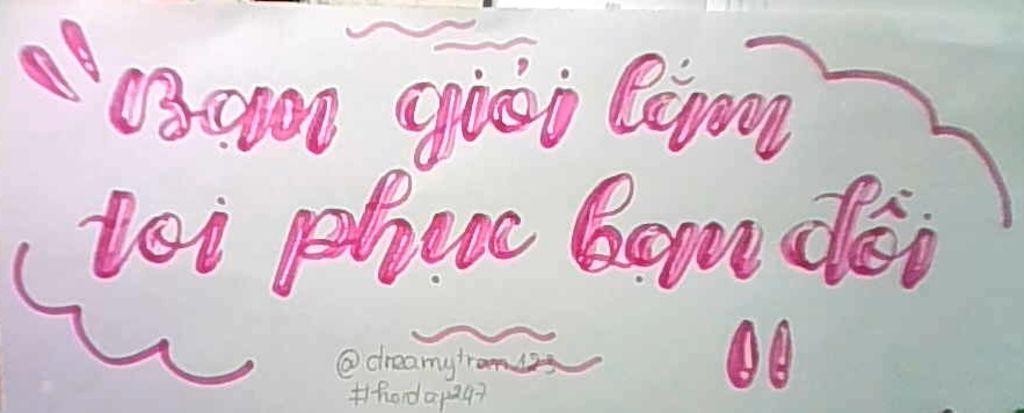 Bạn giỏi lắm
toi phục bạn đồi
@dreamytran123
#hoidap247